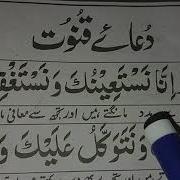 دعائے قنوت
اِنَّا نَسْتَعِينُكَ وَنَسْتَغْفِ
مدد مانگتے ہیں اور تجھ سے معافی
وَنَتَوَكَّلُ عَلَيْكَ وَ